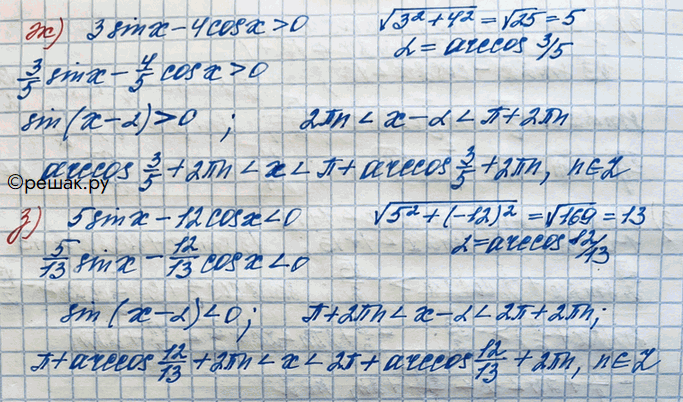 ж) 3 sin x - 4 cos x > 0    √(3² + 4²) = √25 = 5
α = arccos 3/5
3/5 sin x - 4/5 cos x > 0
sin (x - α) > 0 ;    2πn < x - α < π + 2πn
arccos 3/5 + 2πn < x < π + arccos 3/5 + 2πn, n ∈ Z
©решак.ру
з) 5 sin x - 12 cos x < 0    √(5² + (-12)²) = √169 = 13
α = arccos 12/13
5/13 sin x - 12/13 cos x < 0
sin (x - α) < 0;    π + 2πn < x - α < 2π + 2πn;
π + arccos 12/13 + 2πn < x < 2π + arccos 12/13 + 2πn, n ∈ Z